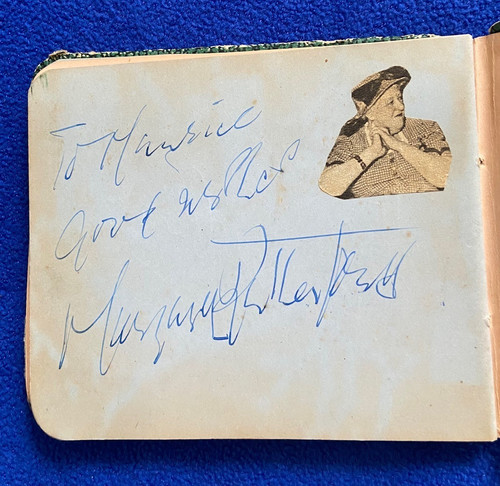 To Maurice
Good wishes
Margaret Rutherford